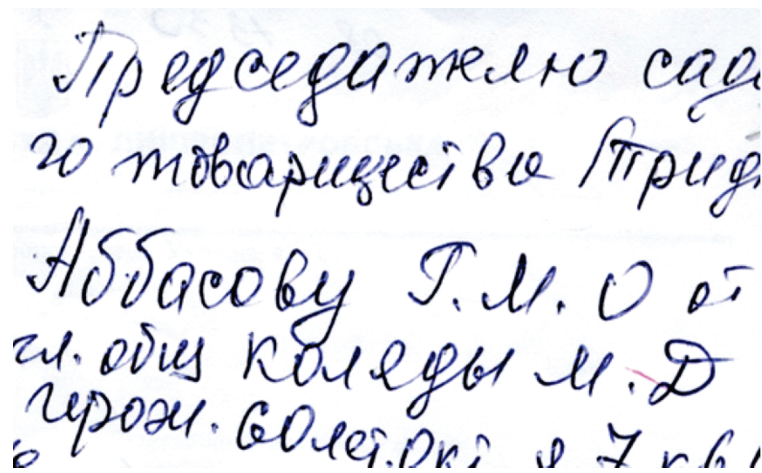 Председателю сад
го товарищества
Аббасову Г. М. О от
чл. общ Коляды М. Д
прож. 60 лет. Окт. д. 7 кв